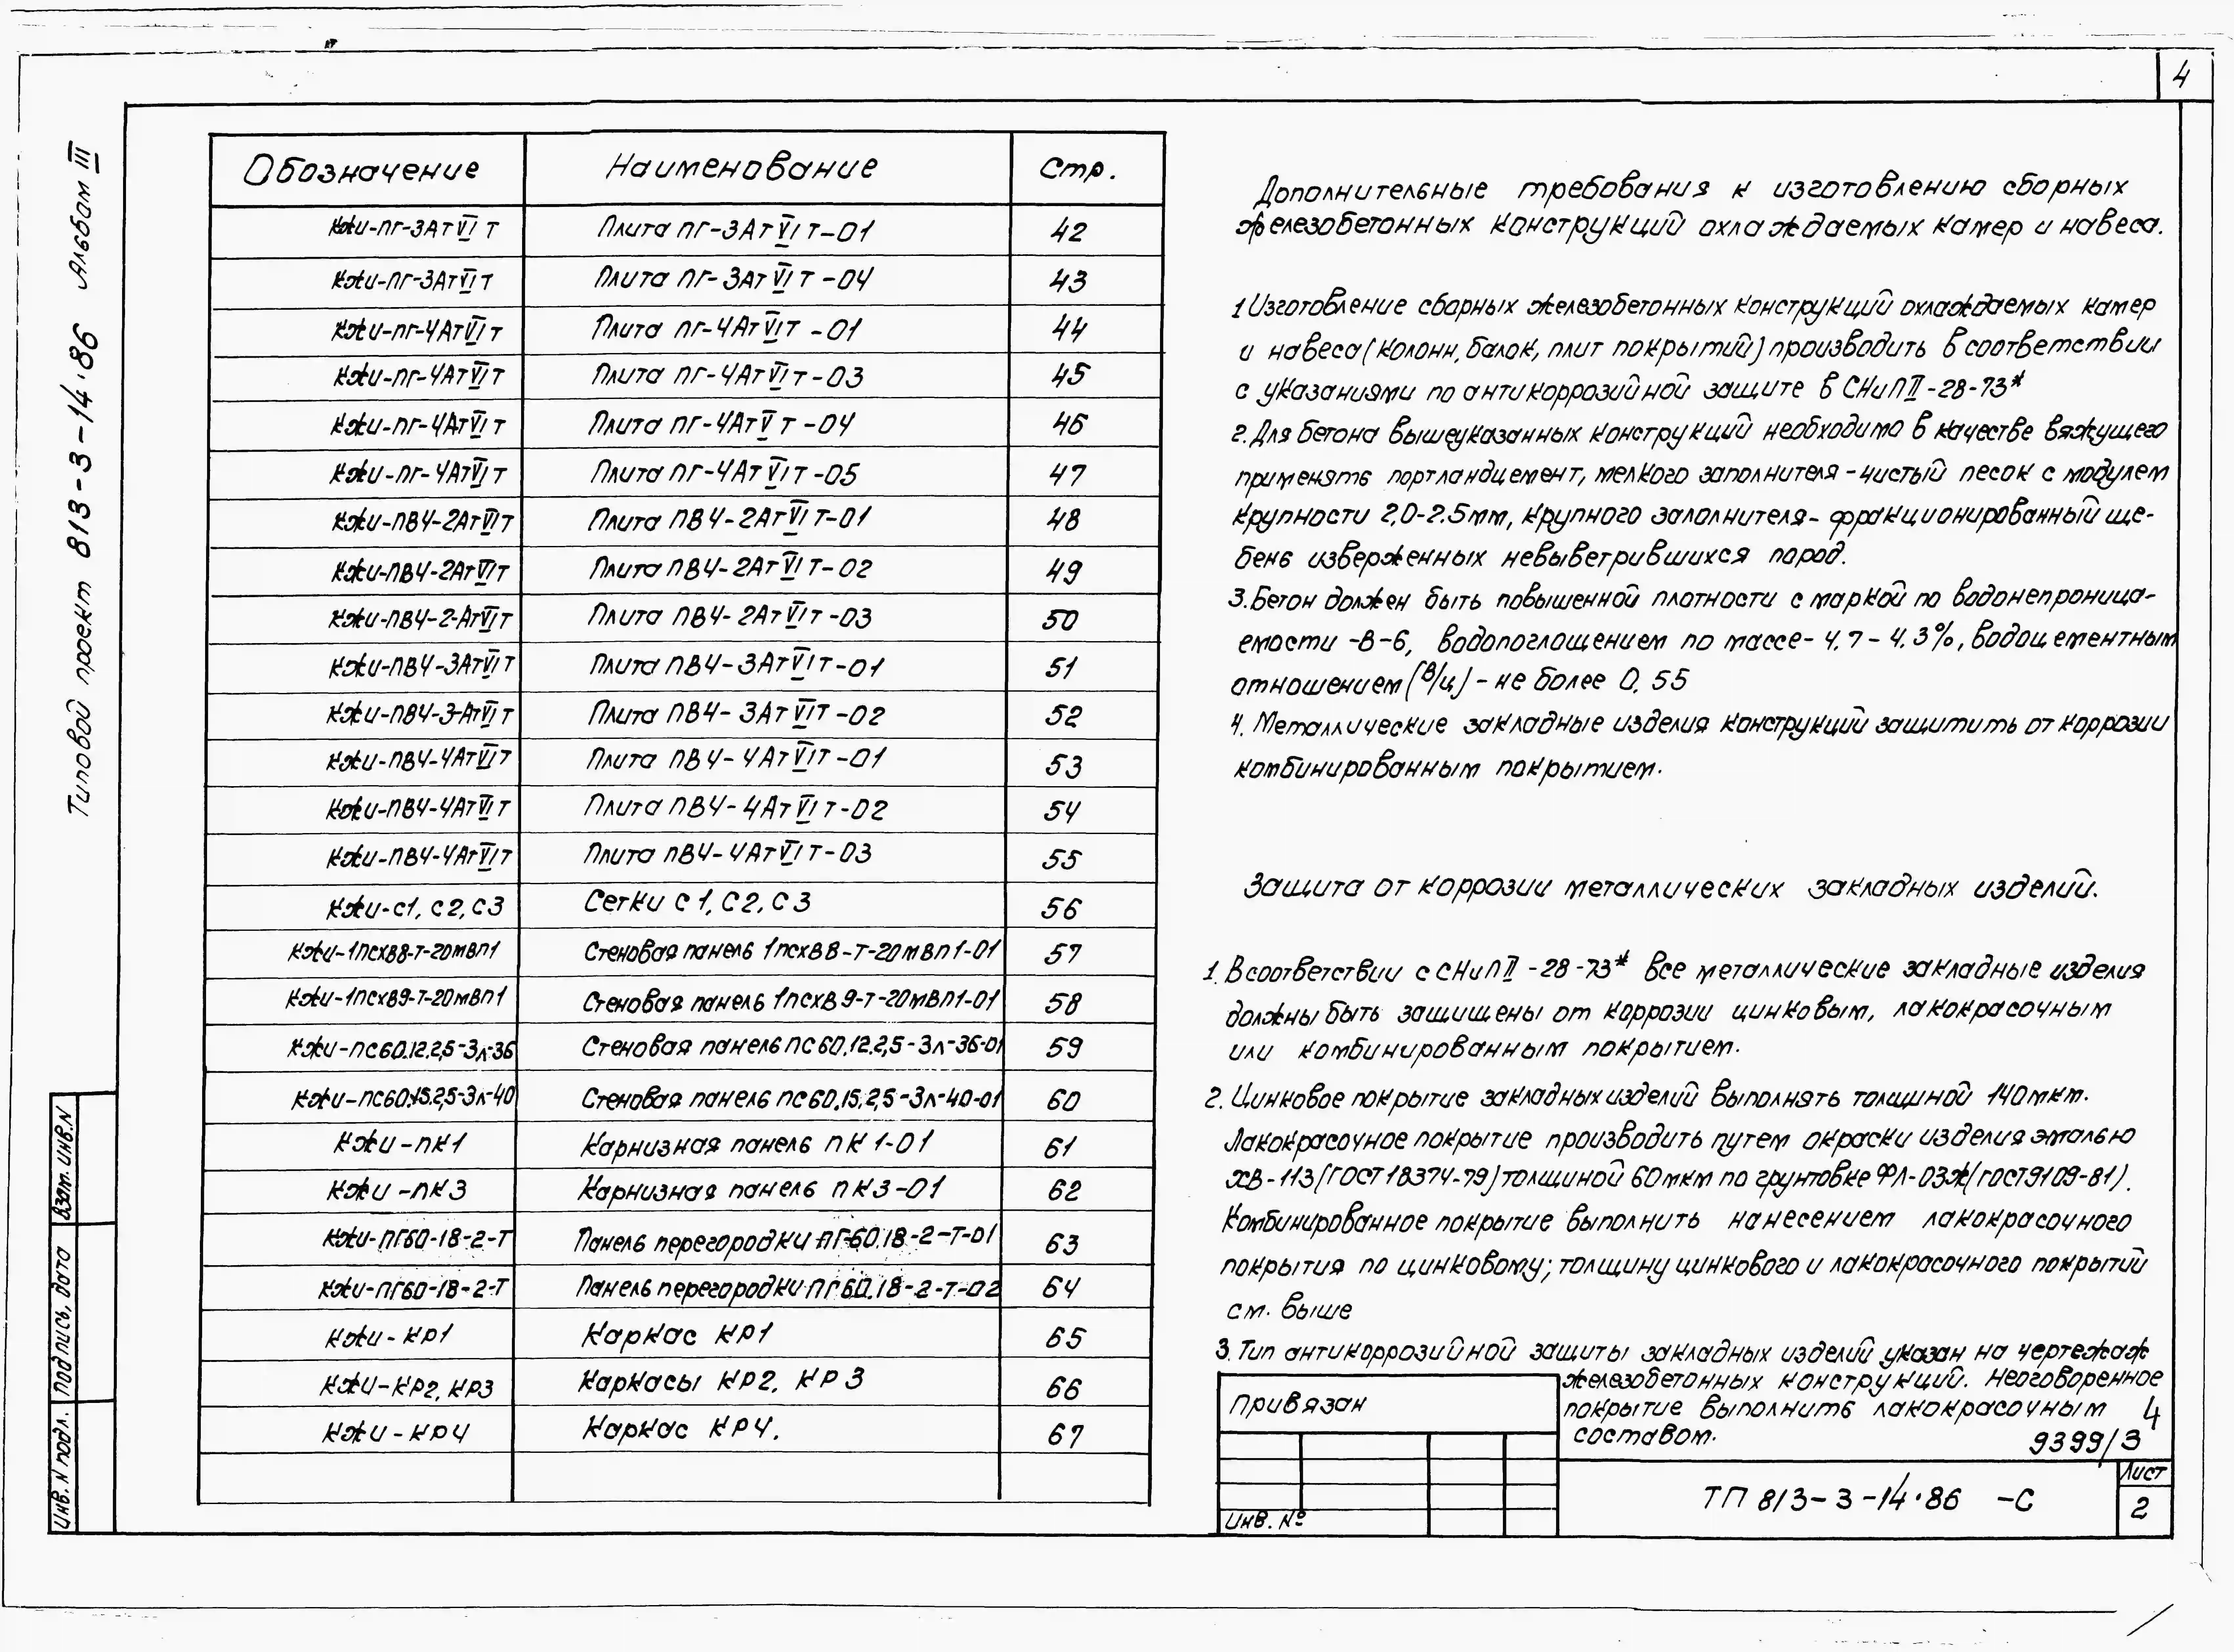 4
Типовой проект 813-3-14·86 Альбом III
Обозначение Наименование Стр.
КЖИ-ПГ-3АтVIТ Плита ПГ-3АтVIТ-01 42
КЖИ-ПГ-3АтVIТ Плита ПГ-3АтVIТ-04 43
КЖИ-ПГ-4АтVIТ Плита ПГ-4АтVIТ-01 44
КЖИ-ПГ-4АтVIТ Плита ПГ-4АтVIТ-03 45
КЖИ-ПГ-4АтVIТ Плита ПГ-4АтVТ-04 46
КЖИ-ПГ-4АтVIТ Плита ПГ-4АтVIТ-05 47
КЖИ-ПВ4-2АтVIТ Плита ПВ4-2АтVIТ-01 48
КЖИ-ПВ4-2АтVIТ Плита ПВ4-2АтVIТ-02 49
КЖИ-ПВ4-2-АтVIТ Плита ПВ4-2АтVIТ-03 50
КЖИ-ПВ4-3АтVIТ Плита ПВ4-3АтVIТ-01 51
КЖИ-ПВ4-3-АтVIТ Плита ПВ4-3АтVIТ-02 52
КЖИ-ПВ4-4АтVIТ Плита ПВ4-4АтVIТ-01 53
КЖИ-ПВ4-4АтVIТ Плита ПВ4-4АтVIТ-02 54
КЖИ-ПВ4-4АтVIТ Плита ПВ4-4АтVIТ-03 55
КЖИ-С1, С2, С3 Сетки С1, С2, С3 56
КЖИ-1ПСХВ8-Т-20МВП1 Стеновая панель 1псхВ8-Т-20МВП1-01 57
КЖИ-1ПСХВ9-Т-20МВП1 Стеновая панель 1псхВ9-Т-20МВП1-01 58
КЖИ-ПС60.12.2,5-3л-36 Стеновая панель ПС60.12.2,5-3л-36-01 59
КЖИ-ПС60.15.2,5-3л-40 Стеновая панель ПС60.15.2,5-3л-40-01 60
КЖИ-ПК1 Карнизная панель ПК1-01 61
КЖИ-ПК3 Карнизная панель ПК3-01 62
КЖИ-ПГ60-18-2-Т Панель перегородки ПГ-60.18-2-Т-01 63
КЖИ-ПГ60-18-2-Т Панель перегородки ПГ60.18-2-Т-02 64
КЖИ-КР1 Каркас КР1 65
КЖИ-КР2, КР3 Каркасы КР2, КР3 66
КЖИ-КР4 Каркас КР4. 67
Дополнительные требования к изготовлению сборных
железобетонных конструкций охлаждаемых камер и навеса.
1 Изготовление сборных железобетонных конструкций охлаждаемых камер
и навеса (колонн, балок, плит покрытий) производить в соответствии
с указаниями по антикоррозийной защите в СНиП II-28-73*
2. Для бетона вышеуказанных конструкций необходимо в качестве вяжущего
применять портландцемент, мелкого заполнителя - чистый песок с модулем
крупности 2,0-2.5мм, крупного заполнителя - фракционированный ще-
бень изверженных невыветрившихся пород.
3. Бетон должен быть повышенной плотности с маркой по водонепроница-
емости -В-6, водопоглощением по массе - 4.7 - 4.3%, водоцементным
отношением (В/ц) - не более 0.55
4. Металлические закладные изделия конструкций защитить от коррозии
комбинированным покрытием.
Защита от коррозии металлических закладных изделий.
1. В соответствии с СНиП II-28-73* все металлические закладные изделия
должны быть защищены от коррозии цинковым, лакокрасочным
или комбинированным покрытием.
2. Цинковое покрытие закладных изделий выполнять толщиной 140мкм.
Лакокрасочное покрытие производить путем окраски изделия эмалью
ХВ-113 (ГОСТ 18374-79) толщиной 60мкм по грунтовке ФЛ-03Ж (ГОСТ9109-81).
Комбинированное покрытие выполнить нанесением лакокрасочного
покрытия по цинковому; толщину цинкового и лакокрасочного покрытий
см. выше
3. Тип антикоррозийной защиты закладных изделий указан на чертежаж
железобетонных конструкций. Неоговоренное
покрытие выполнить лакокрасочным
составом.
4
9399/3
Привязан
Инв. №
ТП 813-3-14·86 -С
Лист
2
Взам. инв. N
Подпись, дата
Инв. N подл.